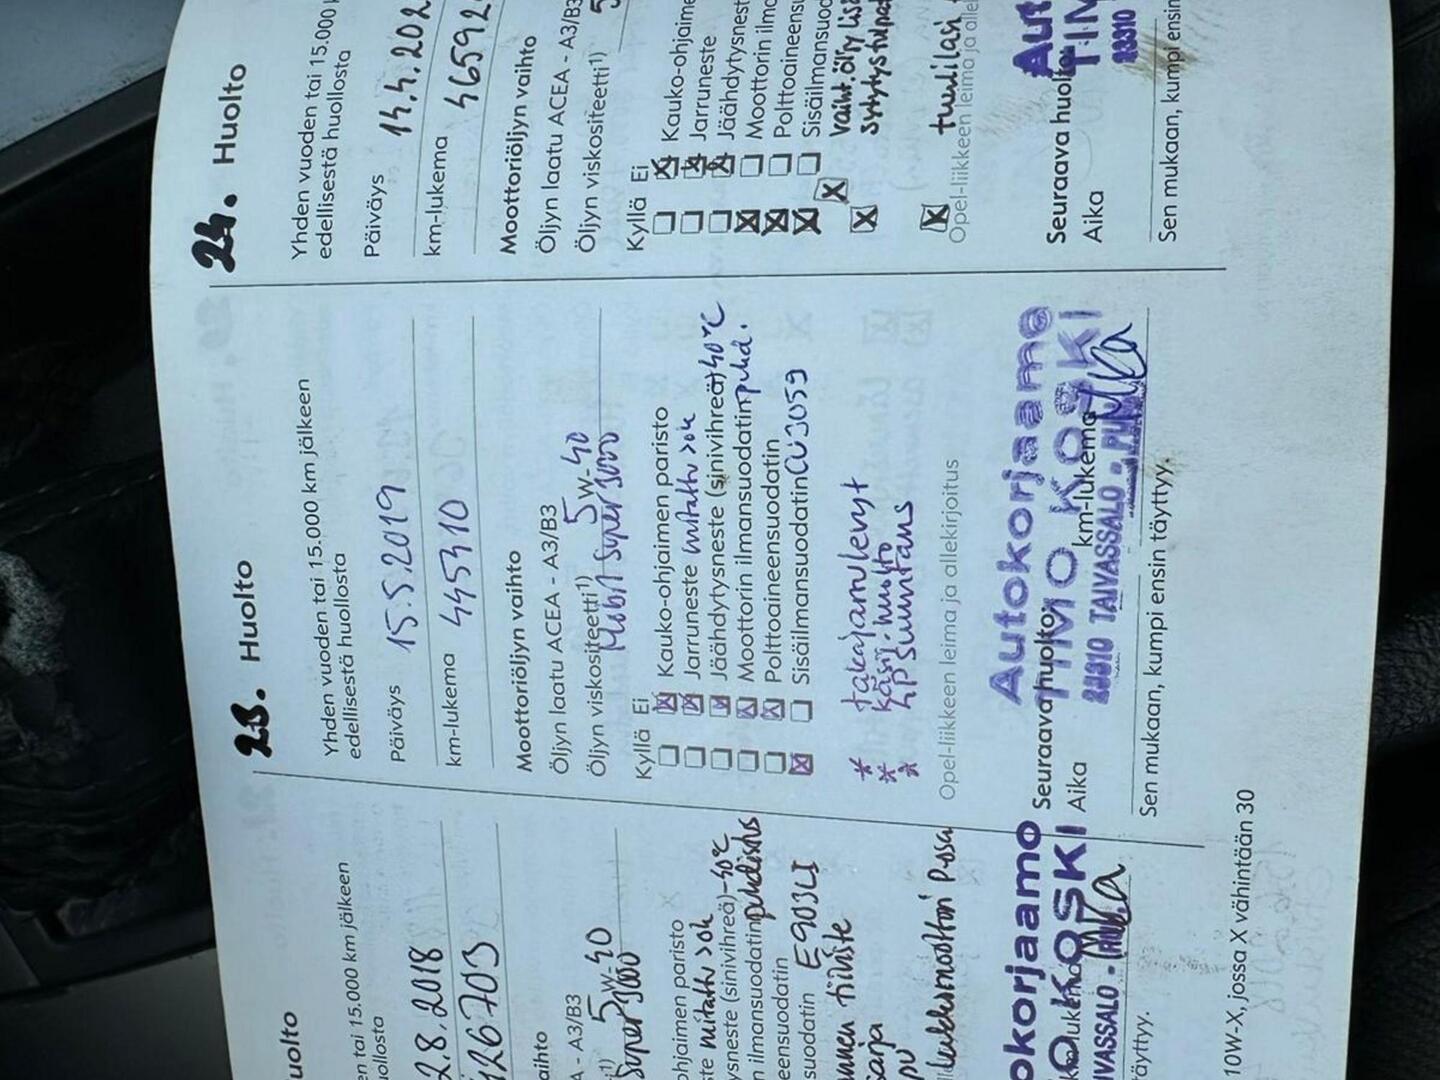 Huolto
en tai 15.000 km jälkeen
uollosta
2.8.2018
426703
aihto
A - A3/B3
5W-40
Super 3000
ohjaimen paristo
ste mitattu >ok
ysneste (sinivihreä) -40°C
n ilmansuodatin puhdistus
eensuodatin
suodatin E903LI
sarja
okorjaamo
O KOSKI
IVASSALO -
täyttyy.
10W-X, jossa X vähintään 30
23. Huolto
Yhden vuoden tai 15.000 km jälkeen
edellisestä huollosta
Päiväys 15.5.2019
km-lukema 445310
Moottoriöljyn vaihto
Öljyn laatu ACEA - A3/B3
5W-40
Öljyn viskositeetti1) Mobil Super 3000
Kyllä Ei
Kauko-ohjaimen paristo
Jarruneste mitattu >ok
Jäähdytysneste (sinivihreä) -40°C
Moottorin ilmansuodatin puhd.
Polttoaineensuodatin
Sisäilmansuodatin CU3059
* takajarrulevyt
* käsij. huolto
* 4P Suuntaus
Opel-liikkeen leima ja allekirjoitus
Autokorjaamo
TIMO KOSKI
23310 TAIVASSALO - PUH.
Seuraava huolto:
Aika km-lukema
Sen mukaan, kumpi ensin täyttyy.
24. Huolto
Yhden vuoden tai 15.000
edellisestä huollosta
Päiväys 14.4.202
km-lukema 46592
Moottoriöljyn vaihto
Öljyn laatu ACEA - A3/B3
Öljyn viskositeetti1) 5
Kyllä Ei
Kauko-ohjaime
Jarruneste
Jäähdytysnest
Moottorin ilma
Polttoaineensu
Sisäilmansuod
vaiht. öljy
sytytystulpat
tuulilasi
Opel-liikkeen leima ja alle
Aut
TIM
23310
Seuraava huolto
Aika
Sen mukaan, kumpi ensin